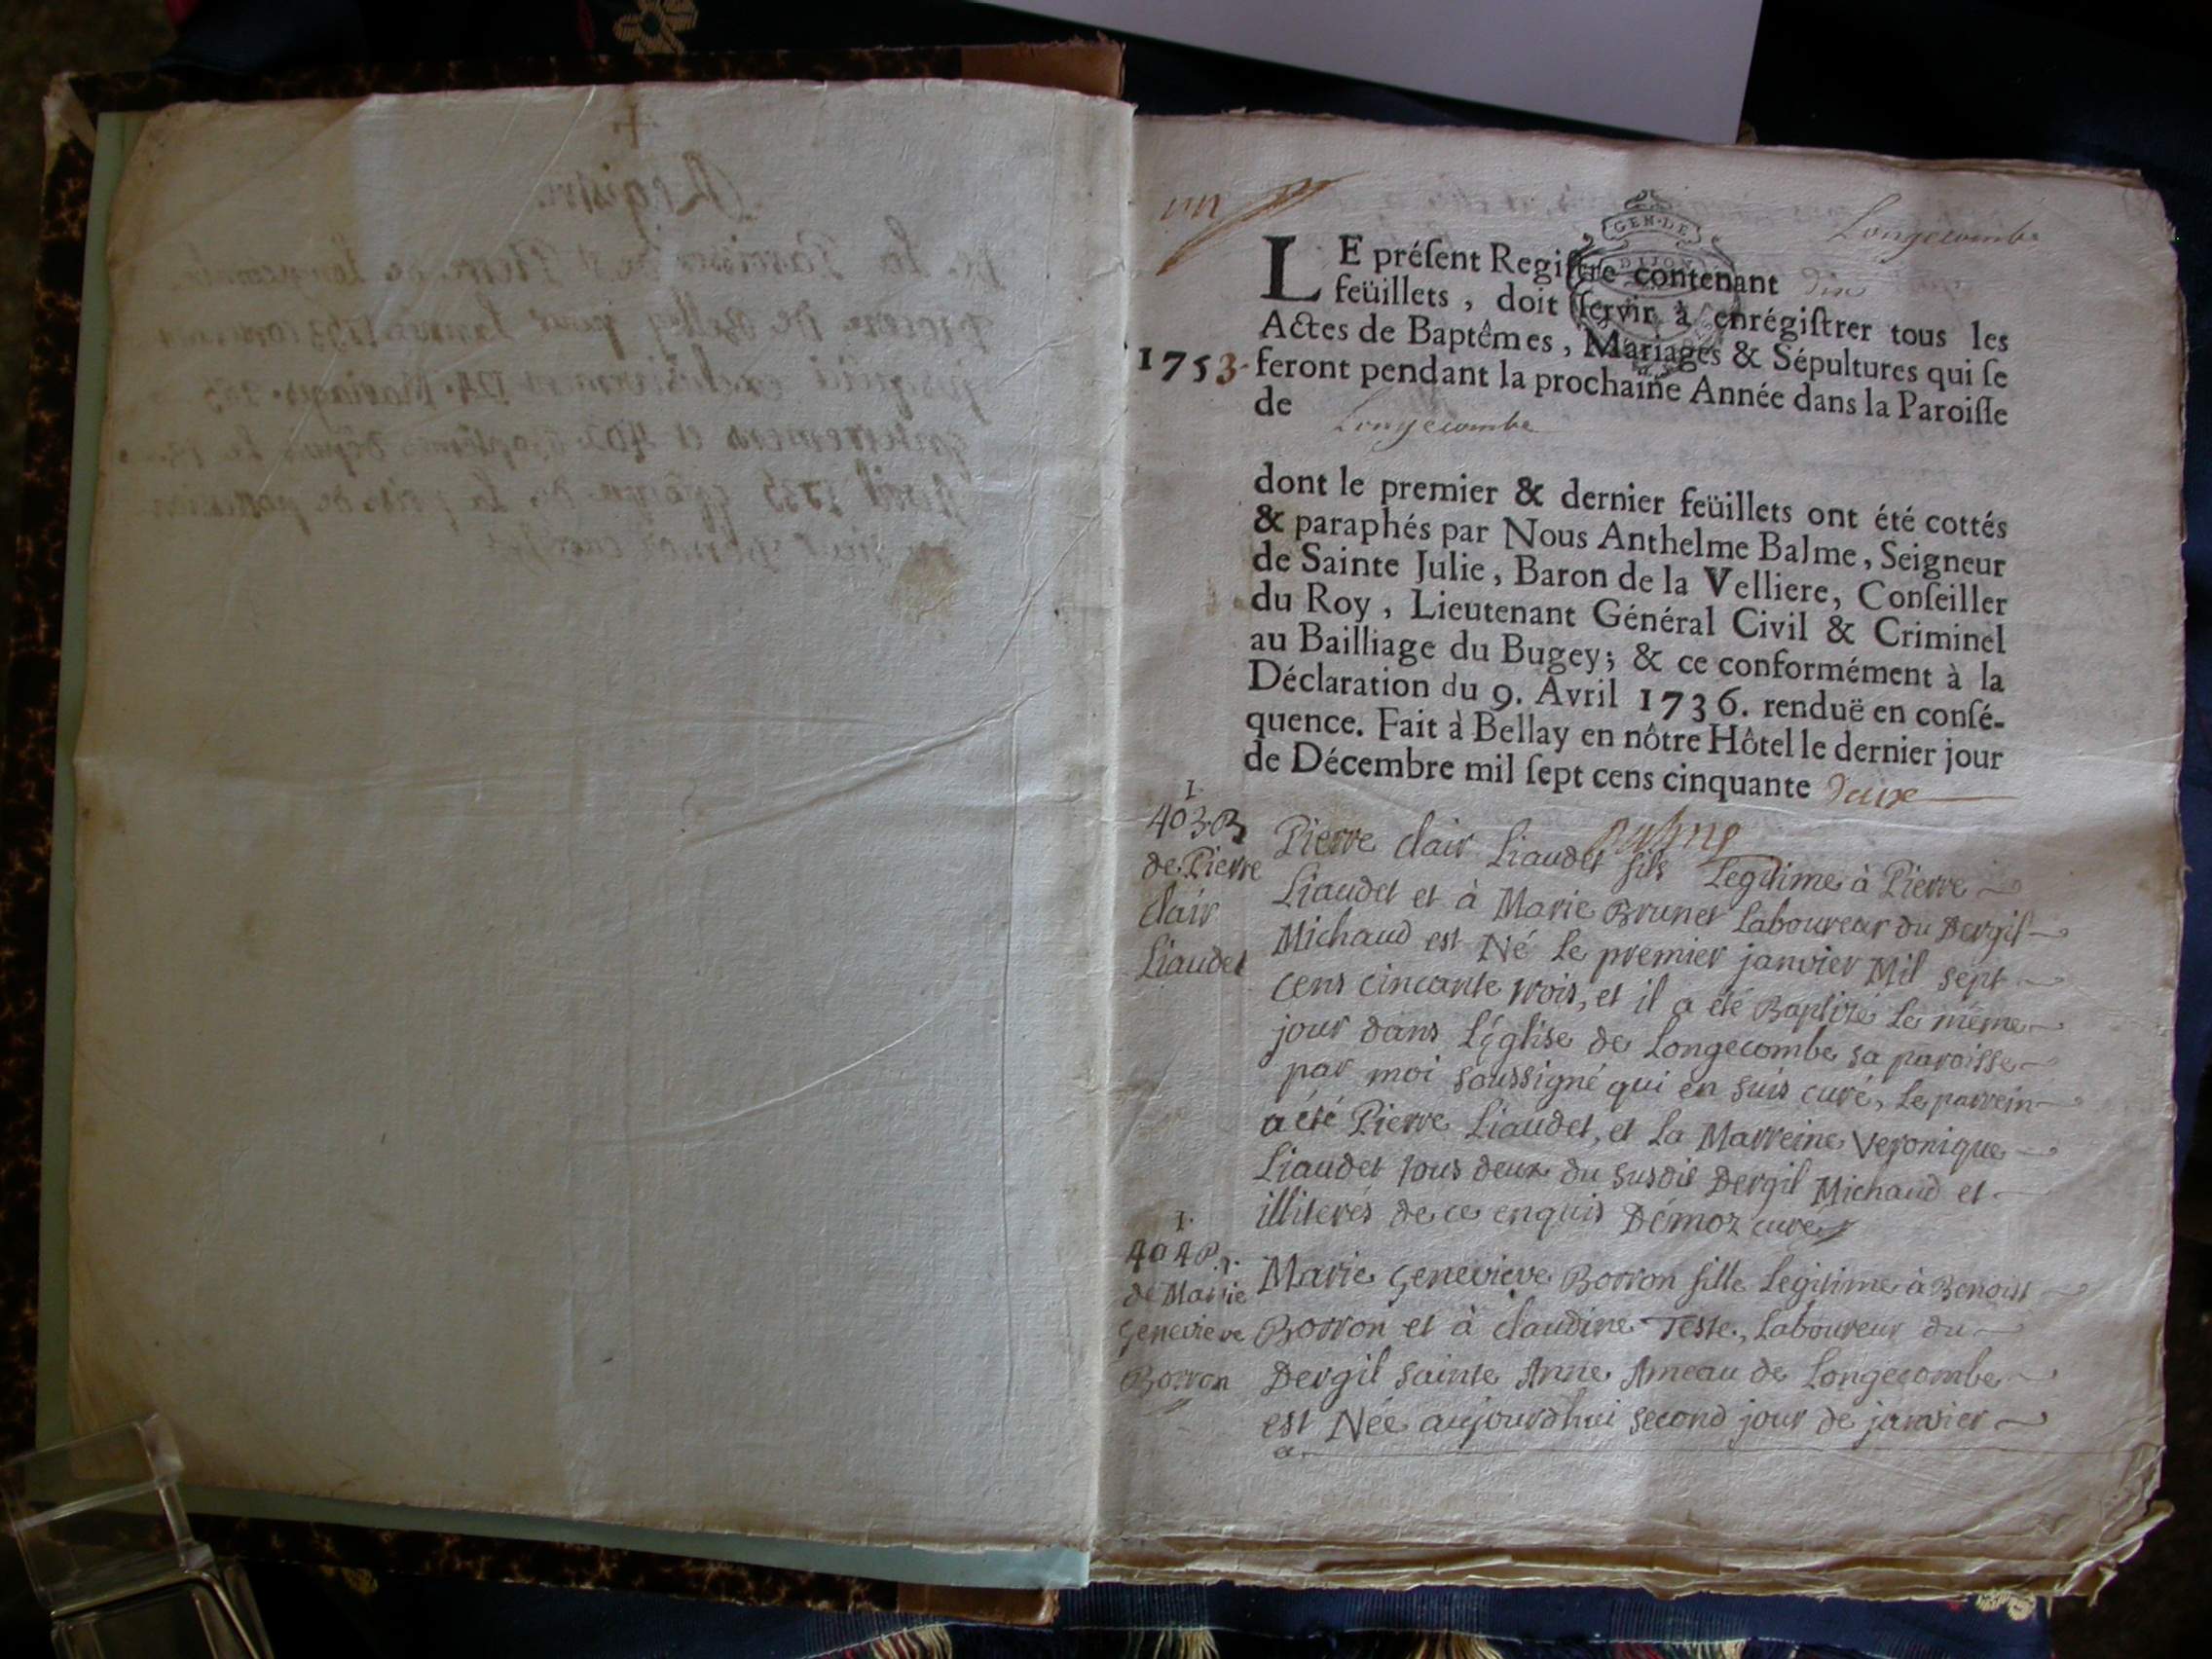 un
Longecombe
GEN·DE
DIJON
LE préſent Regiſtre contenant dix
feüillets, doit ſervir à enrégiſtrer tous les
Actes de Baptêmes, Mariages & Sépultures qui ſe
1753. feront pendant la prochaine Année dans la Paroiſſe
de Longecombe
dont le premier & dernier feüillets ont été cottés
& paraphés par Nous Anthelme Balme, Seigneur
de Sainte Julie, Baron de la Velliere, Conſeiller
du Roy, Lieutenant Général Civil & Criminel
au Bailliage du Bugey; & ce conformément à la
Déclaration du 9. Avril 1736. renduë en conſé-
quence. Fait à Bellay en nôtre Hôtel le dernier jour
de Décembre mil ſept cens cinquante deux
Balme
1.
403. B
de Pierre
clair
Liaudet
Pierre clair Liaudet fils Legitime à Pierre
Liaudet et à Marie Brunet Laboureur du Dergil
Michaud est Né le premier janvier Mil sept
cens cincante trois, et il a été Baptizé le méme
jour dans L'église de Longecombe sa paroisse
par moi soussigné qui en suis curé, Le parrein
a été Pierre Liaudet, et La Marreine Veronique
Liaudet tous deux du susdit Dergil Michaud et
illiterés de ce enquis Démoz curé
1.
404 B.
de Marie
Genevieve
Borron
Marie Genevieve Borron fille Legitime à Benoist
Borron et à claudine Teste, Laboureur du
Dergil sainte Anne Ameau de Longecombe
est Née aujourdhui second jour de janvier